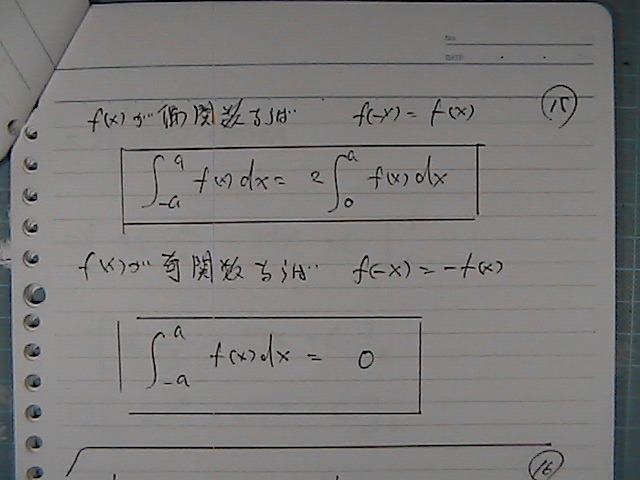 No.
DATE
f(x)が偶関数ならば f(-x) = f(x) ⑮
∫_{-a}^{a} f(x)dx = 2∫_{0}^{a} f(x)dx
f(x)が奇関数ならば f(-x) = -f(x)
∫_{-a}^{a} f(x)dx = 0
⑯